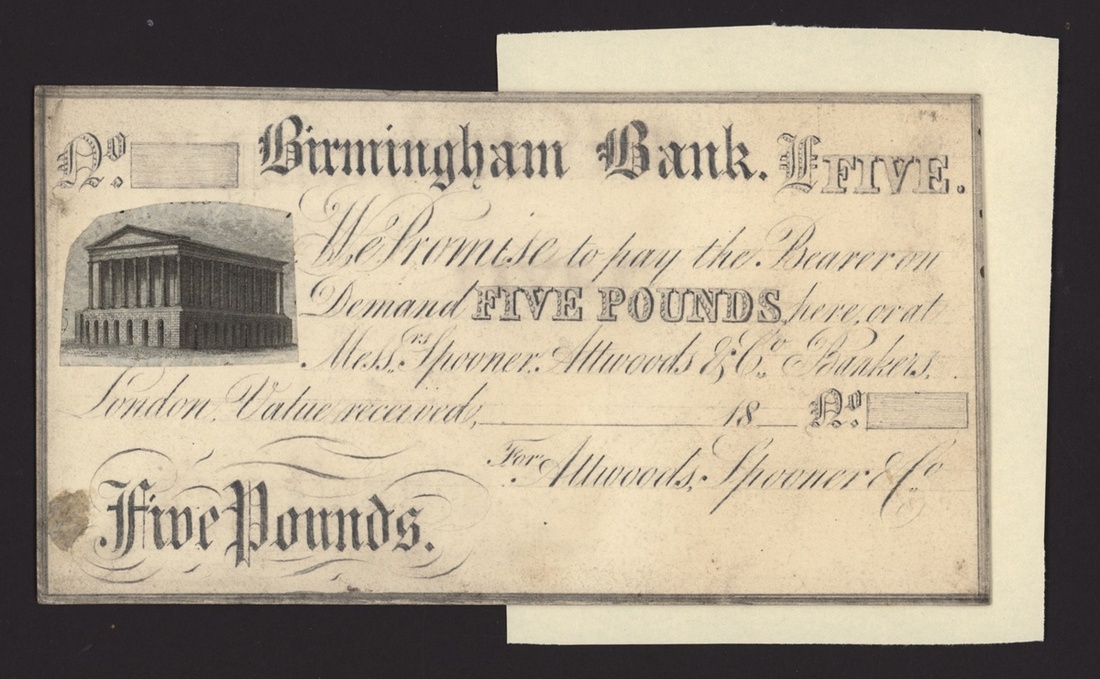 No. Birmingham Bank. £FIVE.
We Promise to pay the Bearer on
Demand FIVE POUNDS, here, or at
Messrs. Spooner, Attwoods & Co. Bankers,
London, Value received, 18 No.
For Attwoods, Spooner & Co.
Five Pounds.